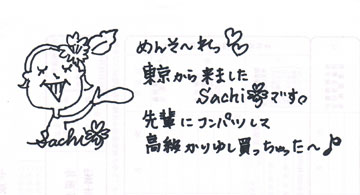 めんそ〜れっ♡♡
東京から来ました
Sachiです。
先輩にコンパツして
高級かりゆし買っちゃった〜♪
Sachi